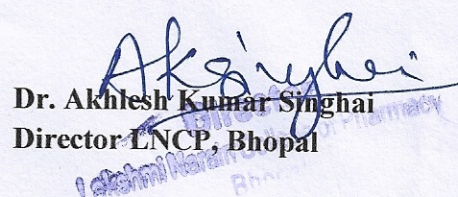 AKSinghai
Dr. Akhlesh Kumar Singhai
Director LNCP, Bhopal
Director
Lakshmi Narain College of Pharmacy
Bhopal